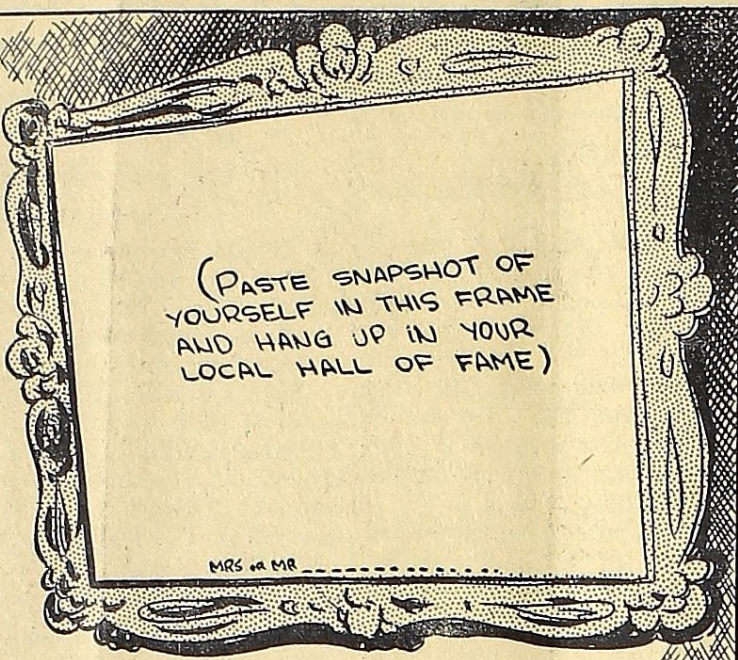 (PASTE SNAPSHOT OF
YOURSELF IN THIS FRAME
AND HANG UP IN YOUR
LOCAL HALL OF FAME)
MRS or MR